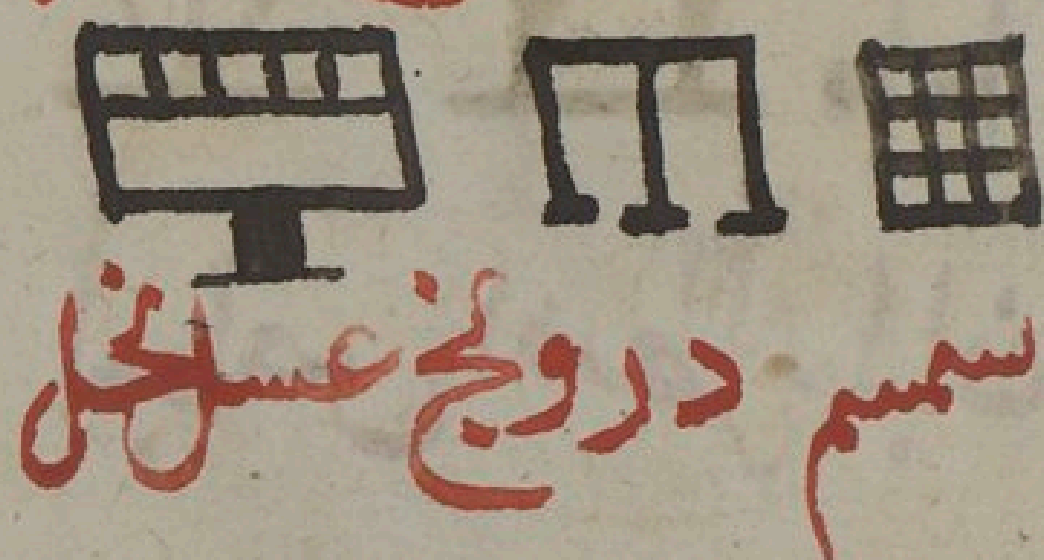 سمسم درونج عسل نحل